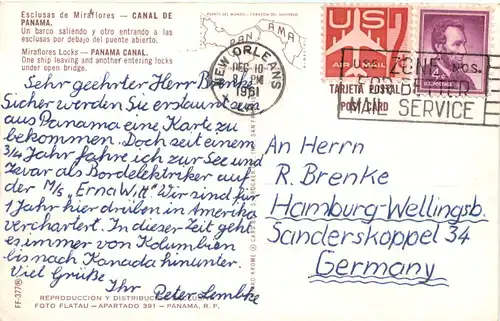 Esclusas de Miraflores — CANAL DE
PANAMA.
Un barco saliendo y otro entrando a las
esclusas por debajo del puente abierto.
Miraflores Locks — PANAMA CANAL.
One ship leaving and another entering locks
under open bridge.
PUENTE DEL MUNDO - CORAZON DEL UNIVERSO
PANAMA
NEW ORLEANS
DEC 10
PM
1961
LA.
US
AIR MAIL
7¢
4¢
ZONE NOS.
MAIL SERVICE
TARJETA POSTAL
POST CARD
Sehr geehrter Herr Brenke
Sicher werden Sie erstaunt sein
aus Panama eine Karte zu
bekommen. Doch seit einem
3/4 Jahr fahre ich zur See und
zwar als Bordelektriker auf
der M/S „Erna Witt" Wir sind für
1 Jahr hier drüben in Amerika
verchartert. In dieser Zeit geht
es immer von Kolumbien
bis nach Kanada hinunter.
Viel Grüße
Ihr Peter Lembke
An Herrn
R. Brenke
Hamburg-Wellingsb.
Sanderskoppel 34
Germany
REPRODUCCION Y DISTRIBUCION EXCLUSIVA
FOTO FLATAU - APARTADO 391 - PANAMA, R. P.
FF-377